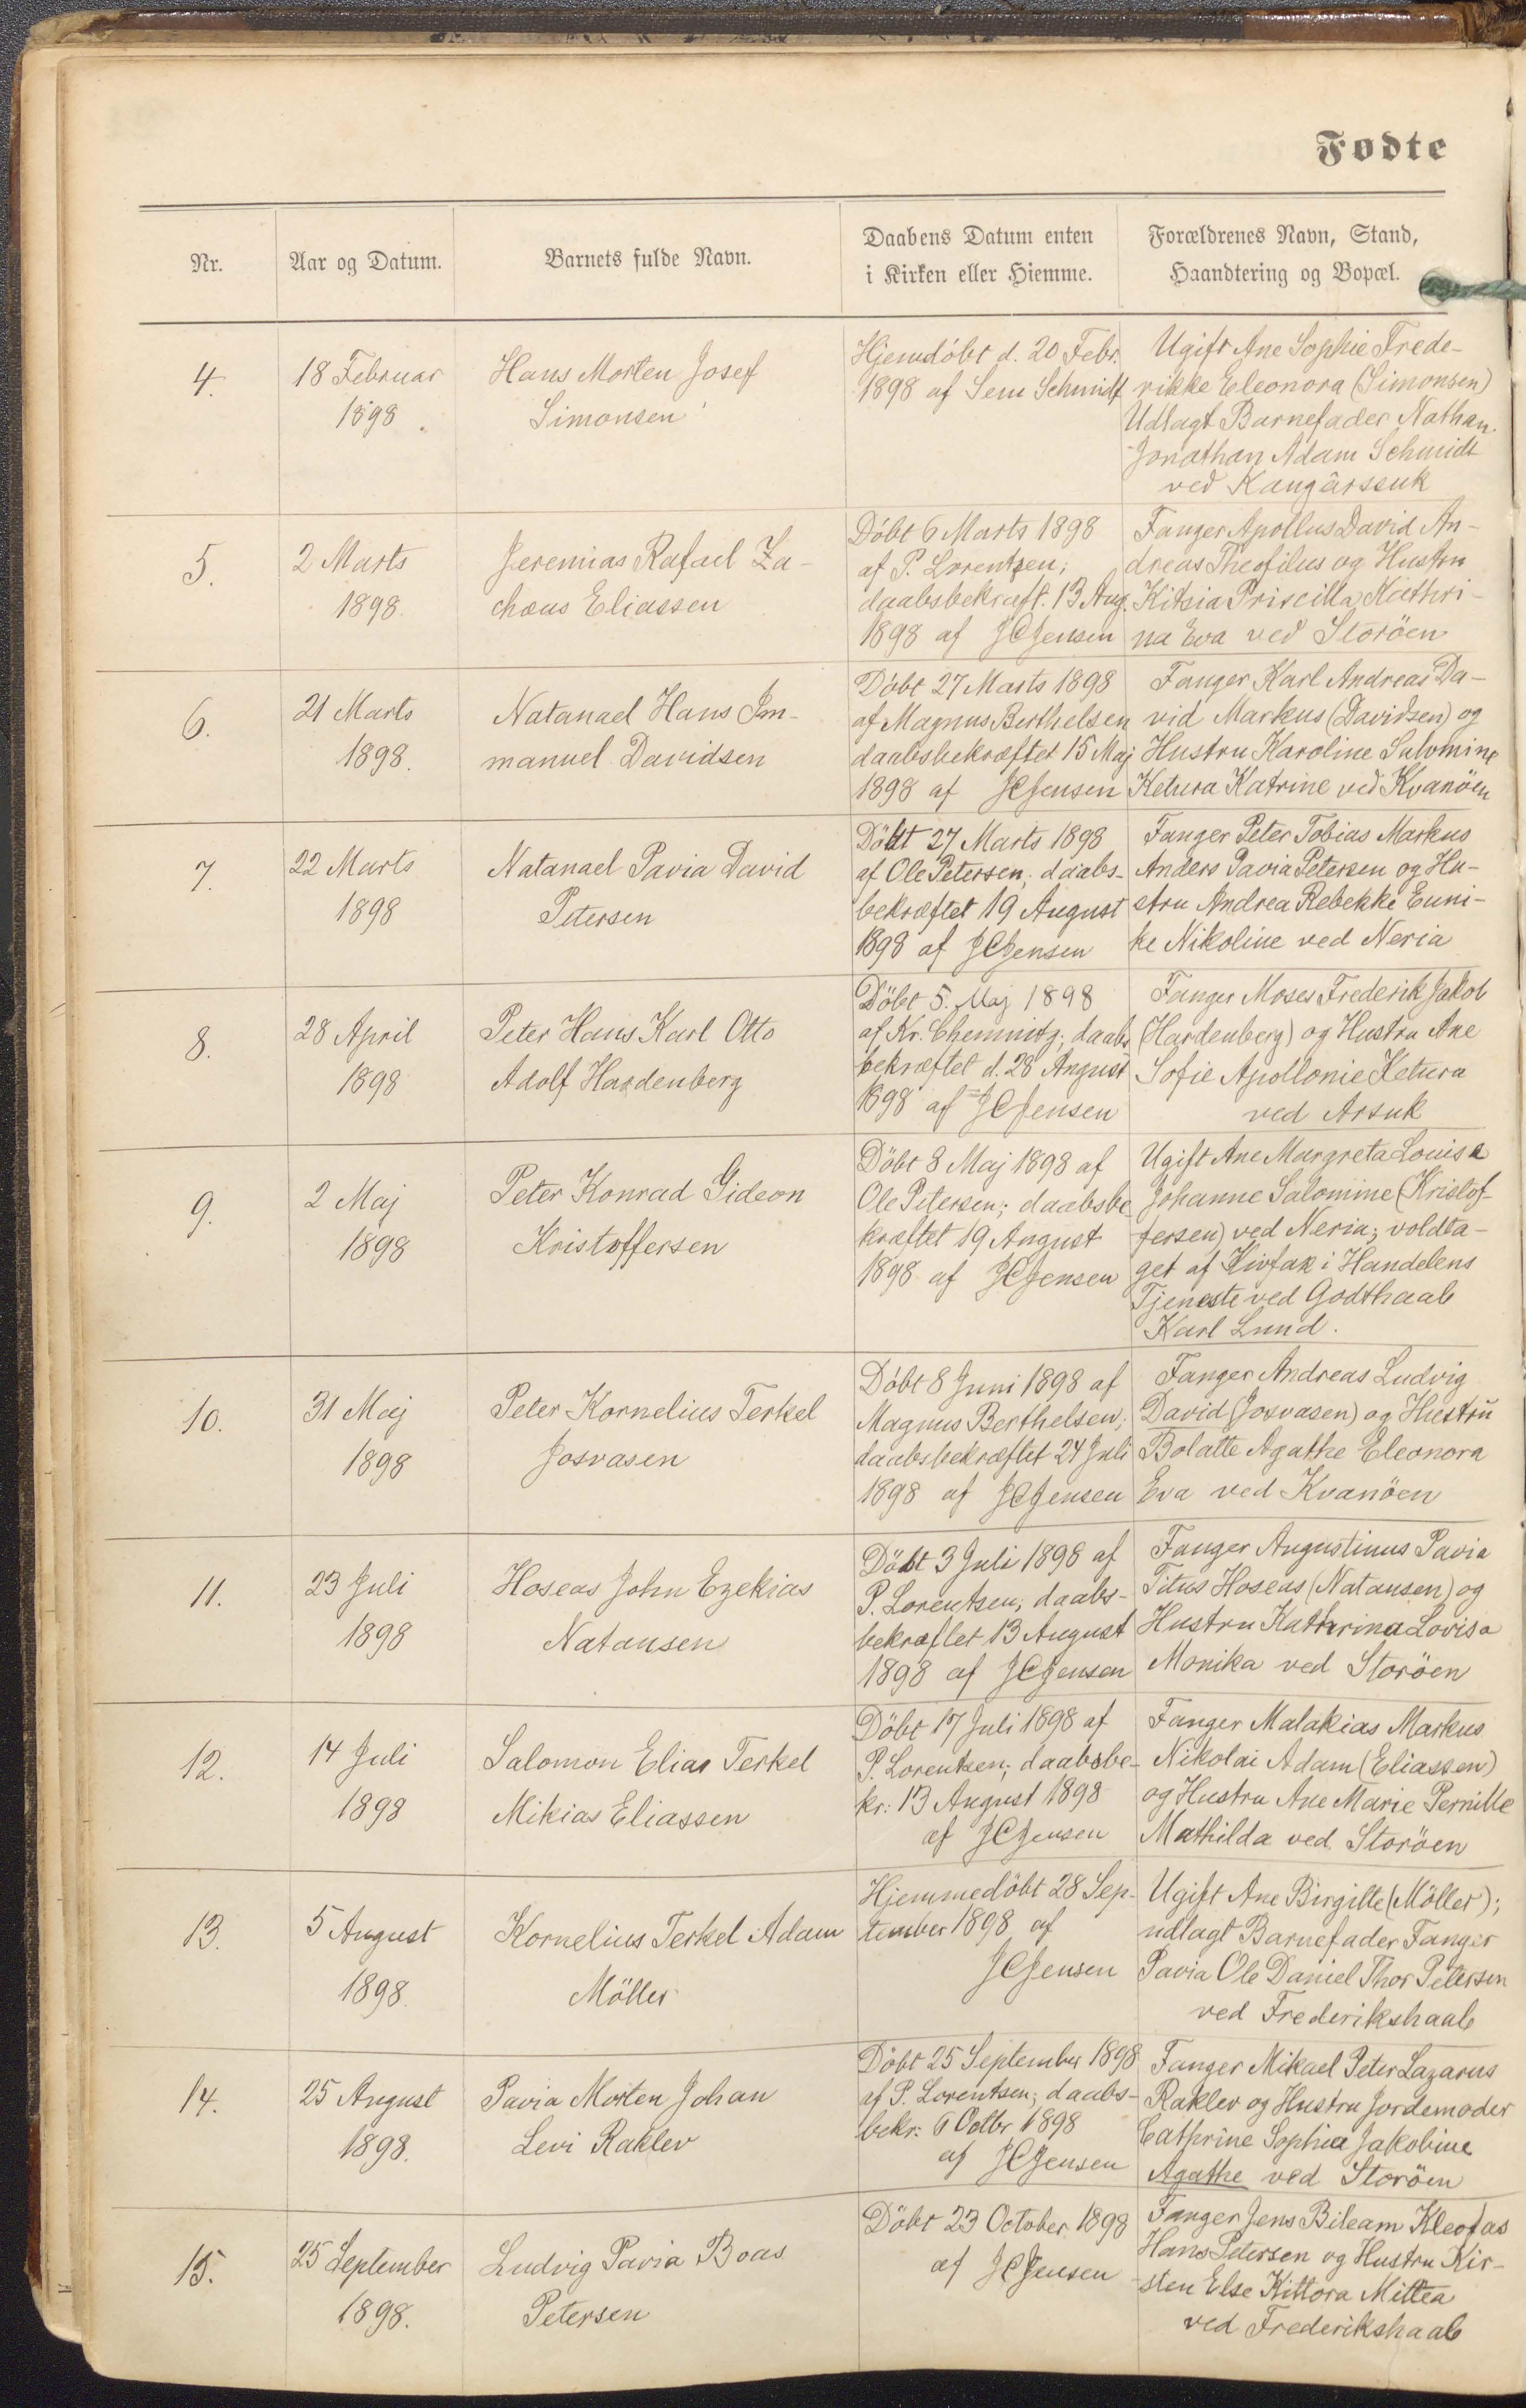 Fødte
Nr.
Aar og Datum.
Barnets fulde Navn.
Daabens Datum enten
i Kirken eller Hiemme.
Forældrenes Navn, Stand,
Haandtering og Bopæl.
4.
18 Februar
1898.
Hans Morten Josef
Simonsen
Hjemdöbt d. 20 Febr.
1898 af Sem Schmidt
Ugift Ane Sophie Frede-
rikke Eleonora (Simonsen)
Udlagt Barnefader Nathan
Jonathan Adam Schmidt
ved Kangârssuk
5.
2 Marts
1898.
Jeremias Rafael Za-
chæus Eliassen
Döbt 6 Marts 1898
af P. Lorentzen;
daabsbekræft. 13 Aug.
1898 af JCJensen
Fanger Apollus David An-
dreas Theofilus og Hustru
Kitsia Priscilla Kathri-
na Eva ved Storöen
6.
21 Marts
1898.
Natanael Hans Im-
manuel Davidsen
Döbt 27 Marts 1898
af Magnus Berthelsen
daabsbekræftet 15 Maj
1898 af JCJensen
Fanger Karl Andreas Da-
vid Markus (Davidsen) og
Hustru Karoline Salomine
Ketura Katrine ved Kvanöen
7.
22 Marts
1898
Natanael Pavia David
Petersen
Döbt 27 Marts 1898
af Ole Petersen; daabs-
bekræftet 19 August
1898 af JCJensen
Fanger Peter Tobias Markus
Anders Pavia Petersen og Hu-
stru Andrea Rebekke Euni-
ke Nikoline ved Neria
8.
28 April
1898
Peter Hans Karl Otto
Adolf Hardenberg
Döbt 5. Maj 1898
af Kr. Chemnitz; daabs
bekræftet d. 28 August
1898 af JCJensen
Fanger Moses Frederik Jakob
(Hardenberg) og Hustru Ane
Sofie Apollonie Ketura
ved Arsuk
9.
2 Maj
1898
Peter Konrad Gideon
Kristoffersen
Döbt 8 Maj 1898 af
Ole Petersen; daabsbe-
kræftet 19 August
1898 af JCJensen
Ugift Ane Margreta Louisa
Johanne Salomine (Kristof-
fersen) ved Neria; voldta-
get af Kivfak i Handelens
Tjeneste ved Godthaab
Karl Lund.
10.
31 Maj
1898
Peter Kornelius Terkel
Josvasen
Döbt 8 Juni 1898 af
Magnus Berthelsen;
daabsbekræftet 24 Juli
1898 af JCJensen
Fanger Andreas Ludvig
David (Josvasen) og Hustrü
Bolatte Agathe Eleonora
Eva ved Kvanöen
11.
23 Juli
1898
Hoseas John Ezekias
Natansen
Döbt 3 Juli 1898 af
P. Lorentsen; daabs-
bekræftet 13 August
1898 af JCJensen
Fanger Augustinus Pavia
Titus Hoseas (Natansen) og
Hustru Kathrina Lovisa
Monika ved Storöen
12.
14 Juli
1898
Salomon Elias Terkel
Mikias Eliassen
Döbt 17 Juli 1898 af
P. Lorentsen; daabsbe-
kr: 13 August 1898
af JCJensen
Fanger Malakias Markus
Nikolai Adam (Eliassen)
og Hustru Ane Marie Pernille
Mathilda ved Storöen
13.
5 August
1898.
Kornelius Terkel Adam
Möller
Hjemmedöbt 28 Sep-
tember 1898 af
JCJensen
Ugift Ane Birgitte (Möller);
udlagt Barnefader Fanger
Pavia Ole Daniel Thor Petersen
ved Frederikshaab
14.
25 August
1898.
Pavia Morten Johan
Levi Raklev
Döbt 25 September 1898
af P. Lorentsen; daabs-
bekr: 6 Octbr 1898
af JCJensen
Fanger Mikael Peter Lazarus
Raklev og Hustru Jordemoder
Cathrine Sophie Jakobine
Agathe ved Storöen
15.
25 September
1898.
Ludvig Pavia Boas
Petersen
Döbt 23 October 1898
af JCJensen
Fanger Jens Bileam Kleofas
Hans Petersen og Hustru Kir-
sten Else Kittora Mittea
ved Frederikshaab